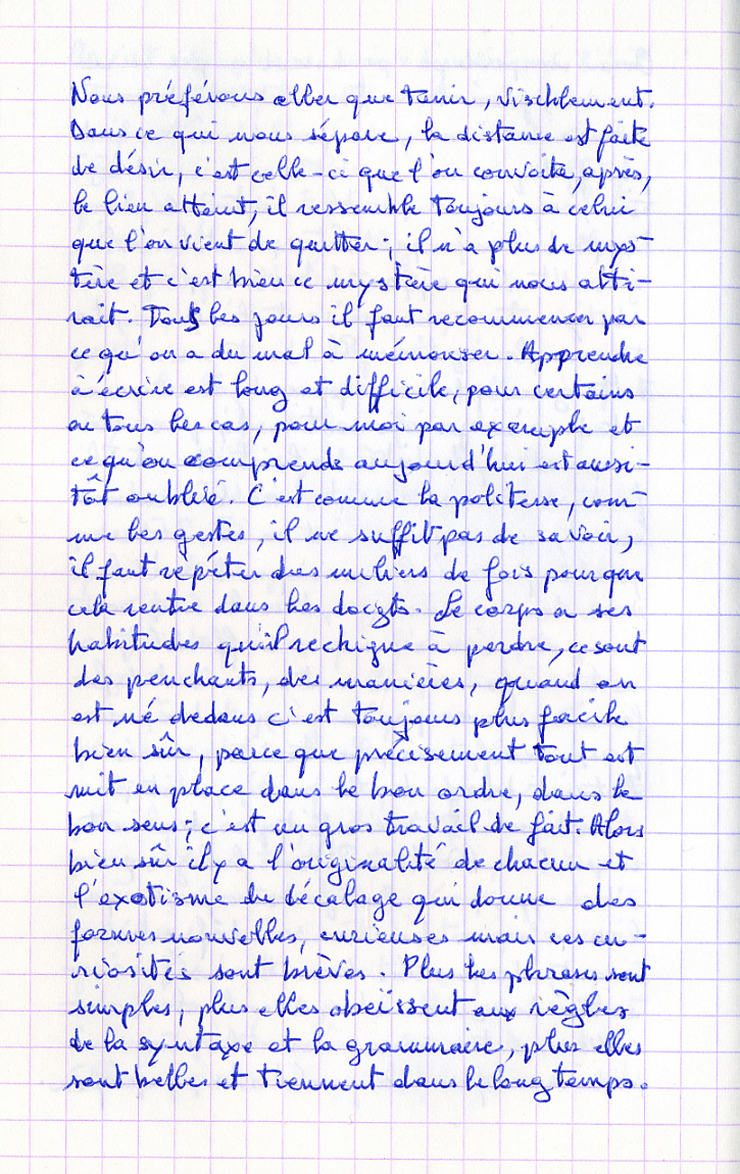 Nous préférons aller que tenir, visiblement.
Dans ce qui nous sépare, la distance est faite
de désir, c'est celle-ci que l'on convoite, après,
le lieu atteint, il ressemble toujours à celui
que l'on vient de quitter ; il n'a plus de mys-
tère et c'est bien ce mystère qui nous atti-
rait. Tous les jours il faut recommencer par
ce qu'on a du mal à mémoriser. Apprendre
à écrire est long et difficile, pour certains
en tous les cas, pour moi par exemple et
ce qu'on comprends aujourd'hui est aussi-
tôt oublié. C'est comme la politesse, com-
me les gestes, il ne suffit pas de savoir,
il faut répéter des milliers de fois pour que
cela rentre dans les doigts. Le corps a ses
habitudes qu'il rechigne à perdre, ce sont
des penchants, des manières, quand on
est né dedans c'est toujours plus facile
bien sûr, parce que précisement tout est
mit en place dans le bon ordre, dans le
bon sens ; c'est un gros travail de fait. Alors
bien sûr il y a l'originalité de chacun et
l'exotisme du décalage qui donne des
formes nouvelles, curieuses mais ces cu-
riosités sont brèves. Plus les phrases sont
simples, plus elles obeïssent aux règles
de la syntaxe et la grammaire, plus elles
sont belles et tiennent dans le long temps.